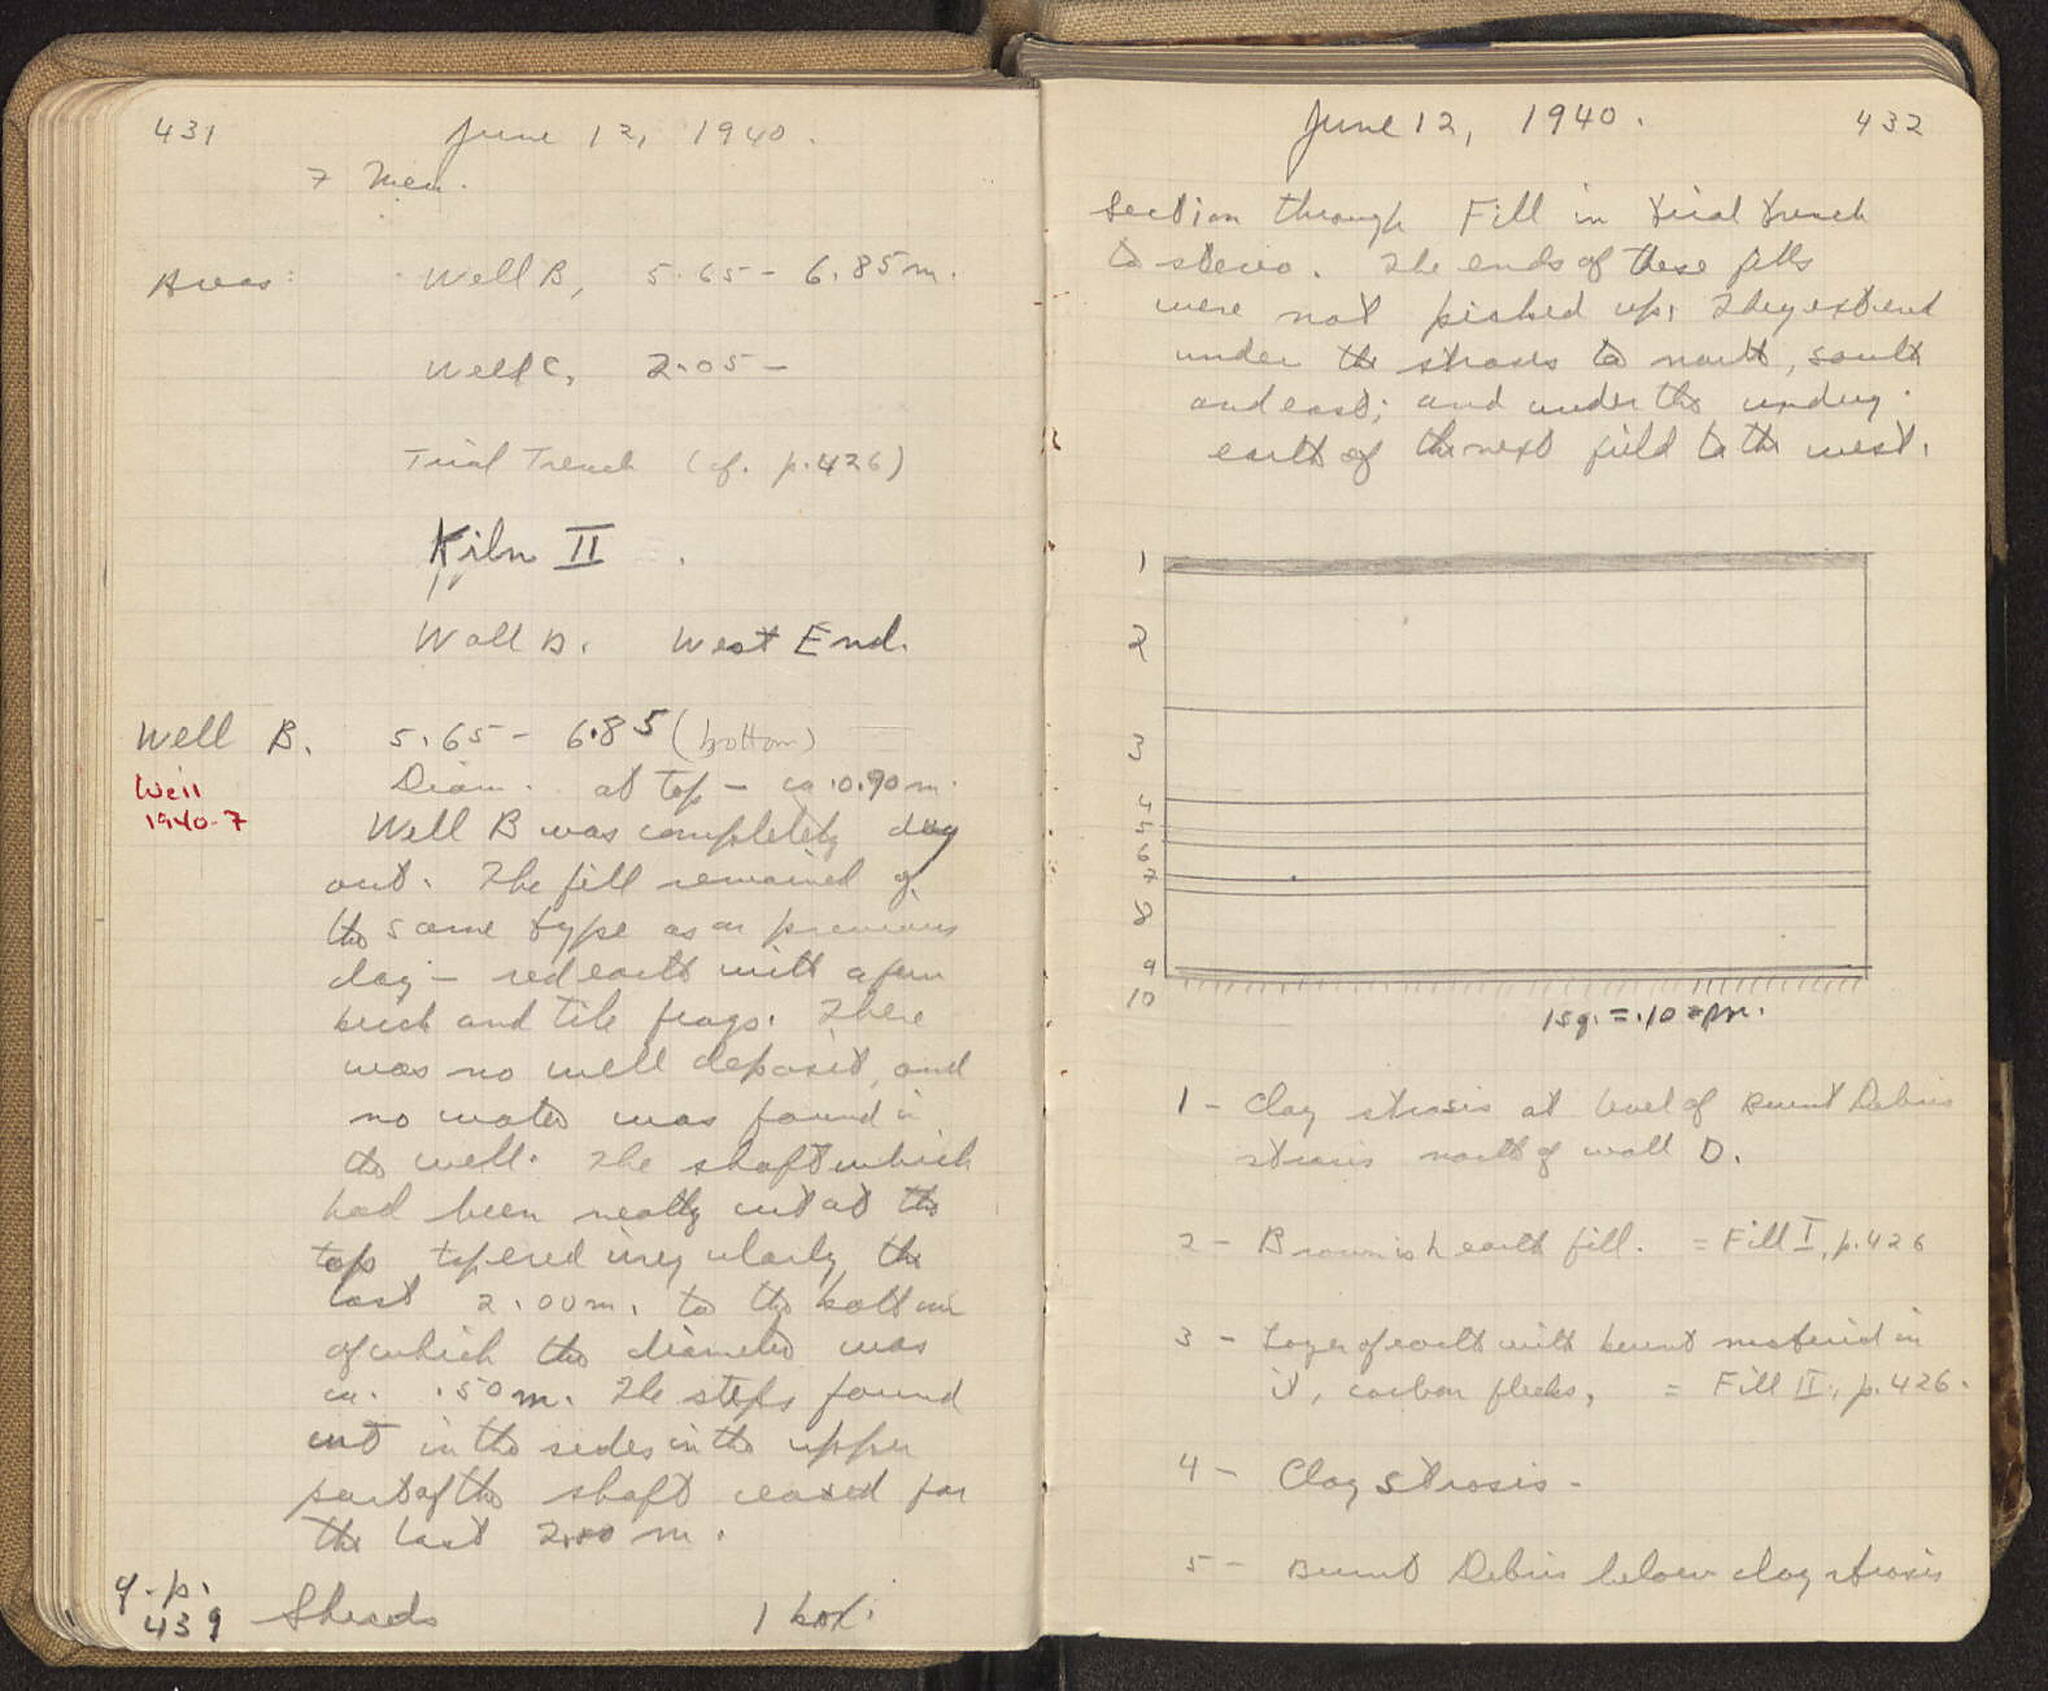 431
June 12, 1940.
7 Men.
Areas:
Well B, 5.65 - 6.85 m.
Well C, 2.05 -
Trial Trench (cf. p. 426)
Kiln II
Wall D. West End.
Well B. 5.65 - 6.85 (bottom)
Well
1940-7
Diam. at top - ca. 0.90 m.
Well B was completely dug
out. The fill remained of
the same type as on previous
day - red earth with a few
brick and tile frags. There
was no well deposit, and
no water was found in
the well. The shaft which
had been neatly cut at the
top tapered irregularly the
last 2.00 m. to the bottom
of which the diameter was
ca. .50 m. The steps found
cut in the sides in the upper
part of the shaft ceased for
the last 2.00 m.
cf. p.
439
Sherds 1 box.
June 12, 1940. 432
Section through Fill in Trial Trench
to stereo. The ends of these fills
were not picked up. They extend
under the strosis to north, south
and east; and under the undug
earth of the next field to the west.
1
2
3
4
5
6
7
8
9
10
1 sq. = .10 m.
1 - Clay strosis at level of Burnt Debris
strosis north of wall D.
2 - Brownish earth fill. = Fill I, p. 426
3 - Layer of earth with burnt material in
it, carbon flecks, = Fill II, p. 426.
4 - Clay strosis -
5 - Burnt Debris below clay strosis